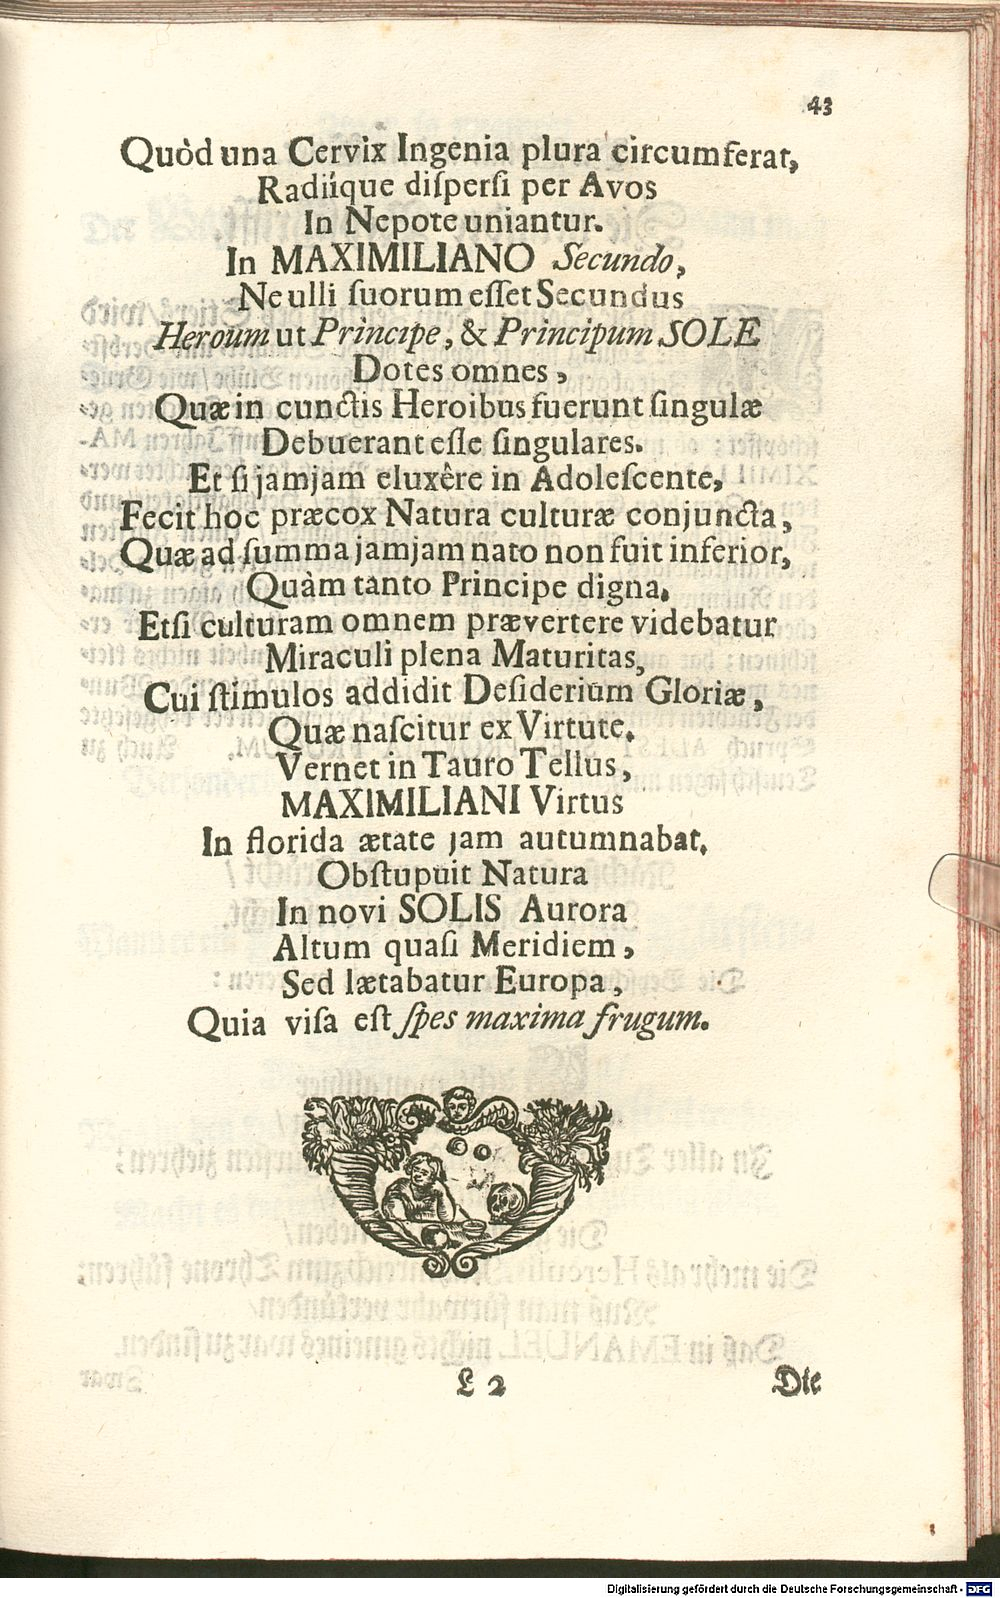 43
Quòd una Cervix Ingenia plura circumferat,
Radiíque diſperſi per Avos
In Nepote uniantur.
In MAXIMILIANO Secundo,
Ne ulli ſuorum eſſet Secundus
Heroum ut Principe, & Principum SOLE
Dotes omnes,
Quæ in cunctis Heroibus fuerunt ſingulæ
Debuerant eſſe ſingulares.
Et ſi jamjam eluxêre in Adoleſcente,
Fecit hoc præcox Natura culturæ conjuncta,
Quæ ad ſumma jamjam nato non fuit inferior,
Quàm tanto Principe digna.
Etſi culturam omnem prævertere videbatur
Miraculi plena Maturitas,
Cui ſtimulos addidit Deſiderium Gloriæ,
Quæ naſcitur ex Virtute.
Vernet in Tauro Tellus,
MAXIMILIANI Virtus
In florida ætate jam autumnabat.
Obſtupuit Natura
In novi SOLIS Aurora
Altum quaſi Meridiem,
Sed lætabatur Europa,
Quia viſa eſt ſpes maxima frugum.
L 2
Die
Digitalisierung gefördert durch die Deutsche Forschungsgemeinschaft - DFG